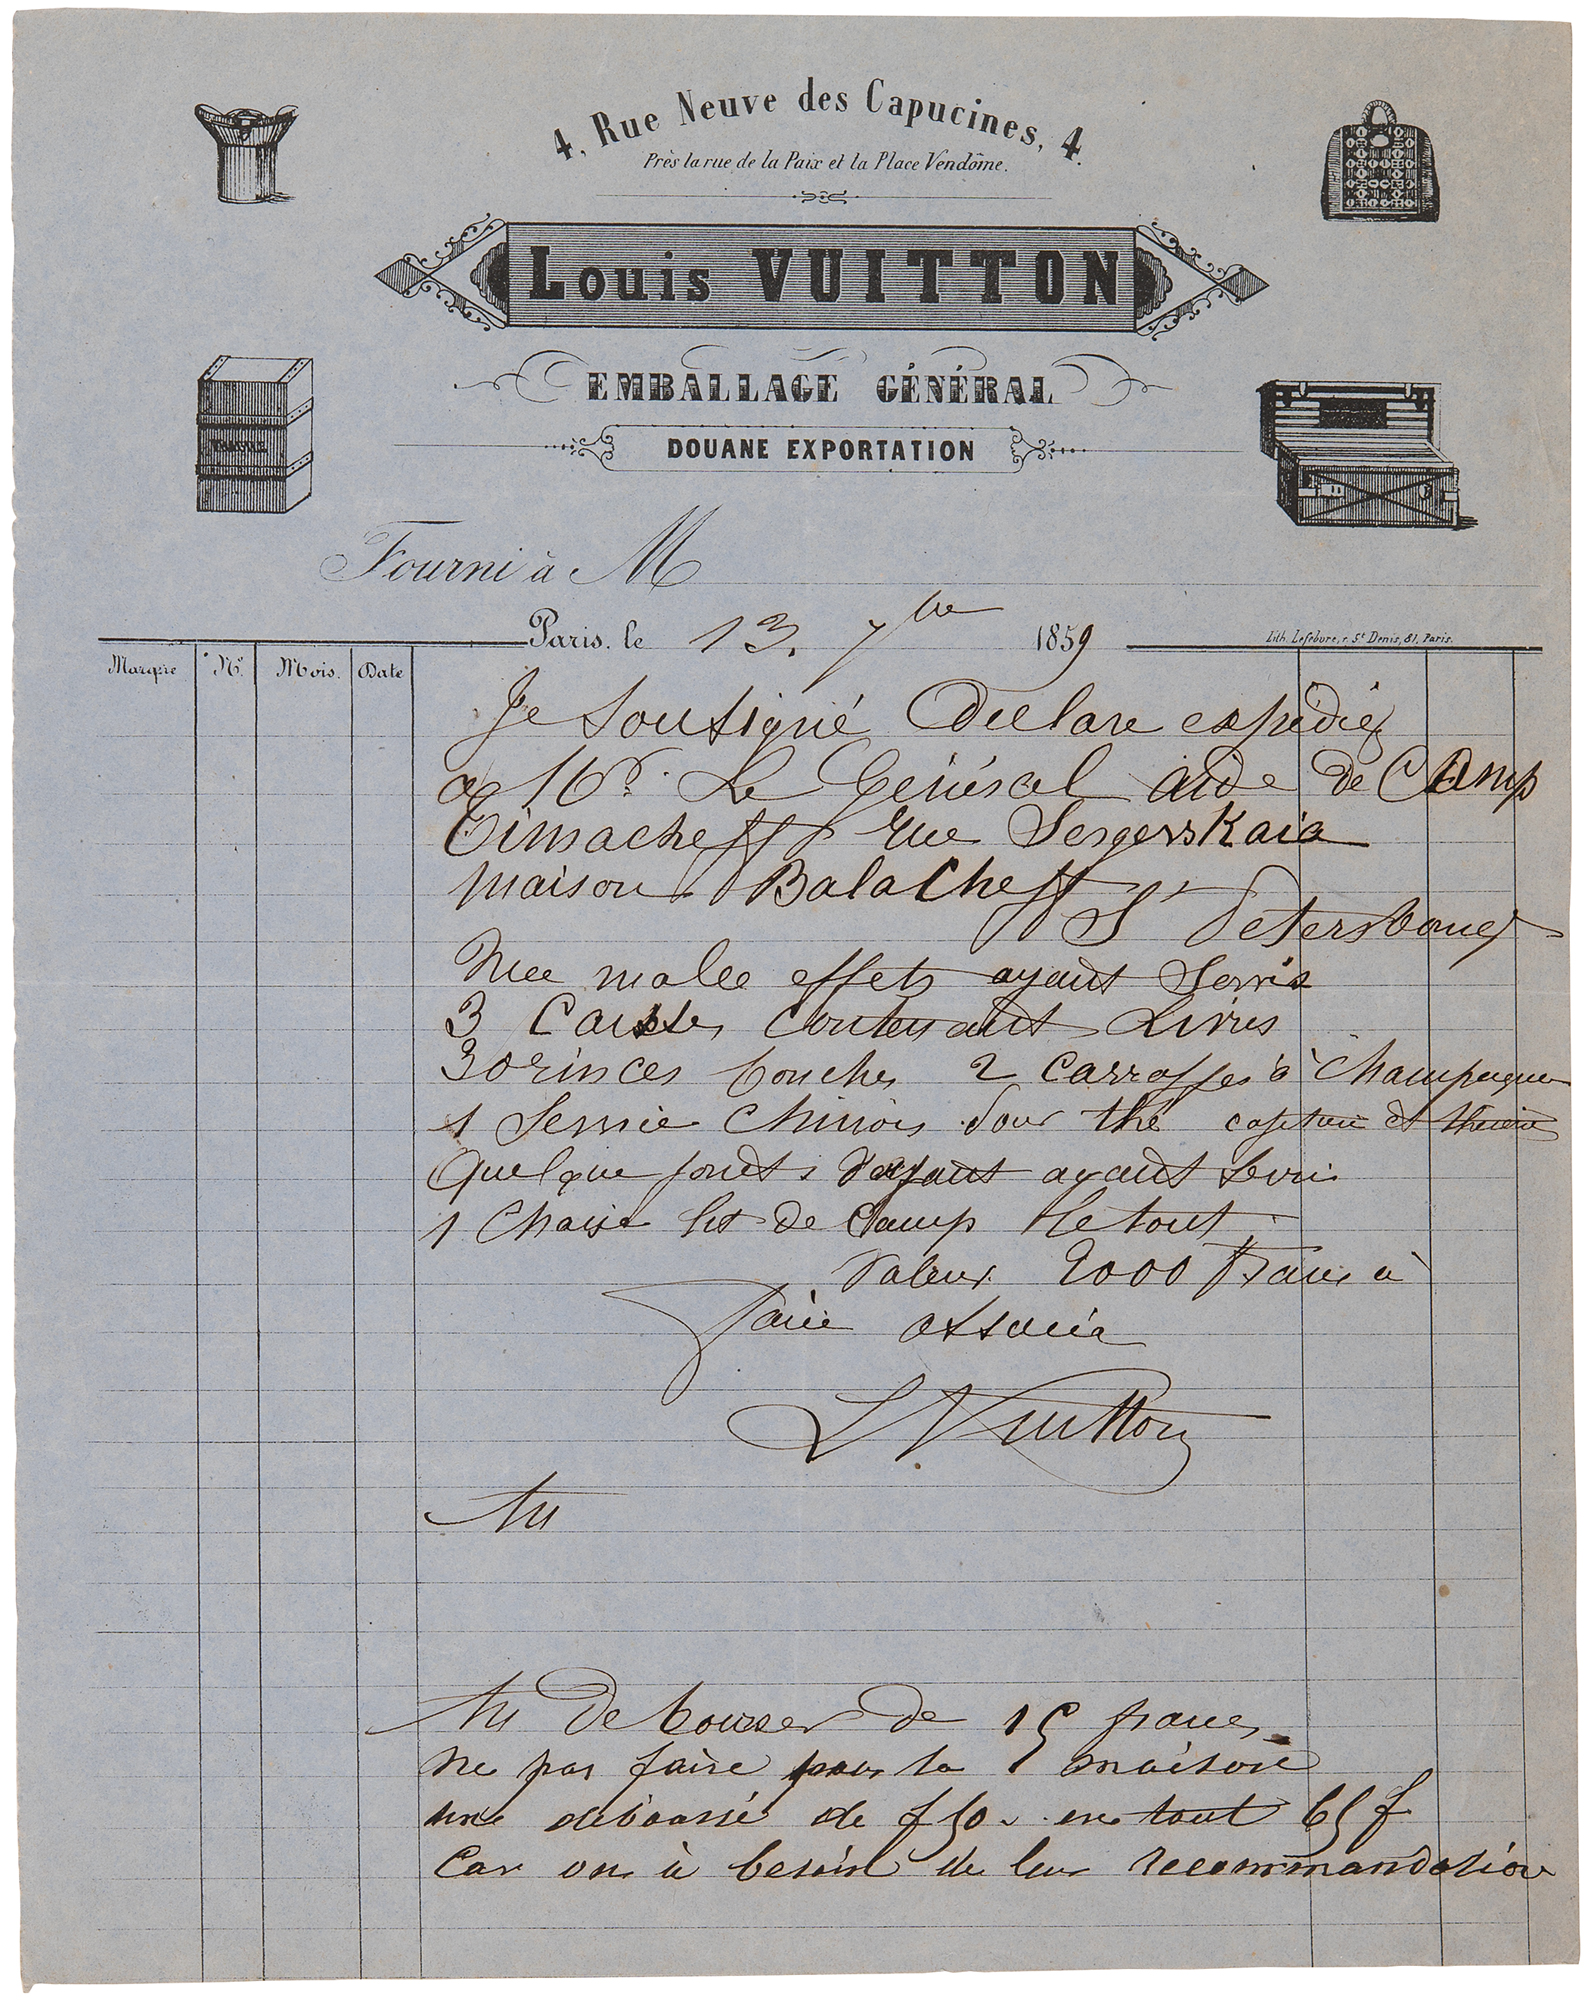 4, Rue Neuve des Capucines, 4.
Près la rue de la Paix et la Place Vendôme.
Louis VUITTON
EMBALLAGE GÉNÉRAL
DOUANE EXPORTATION
Fourni à M
Paris, le 13. 7bre 1859
Lith. Lefebure, r. St Denis, 81, Paris.
Marque No. Mois. Date
Je Soussigné Declare expédiez
a Mr. Le Général aide de Camp
Timacheff rue Sergerskaia
maison Balacheff
St Petersbourg
Une malle effets ayant Servis
3 Caisses Contenant Livres
30 rinces bouches 2 Carraffes à Champagne
1 Servie Chinois pour thé et
quelque ayant Servi
1 Chaise lit de Camp le tout
Valeur 2000 Francs a
faire assurée
L Vuitton
Vu
Vu De bourser de 15 francs
ne pas faire pour la maison
une deboursé de f 50. en tout 65 f
Car on à besoin de leur recommandation